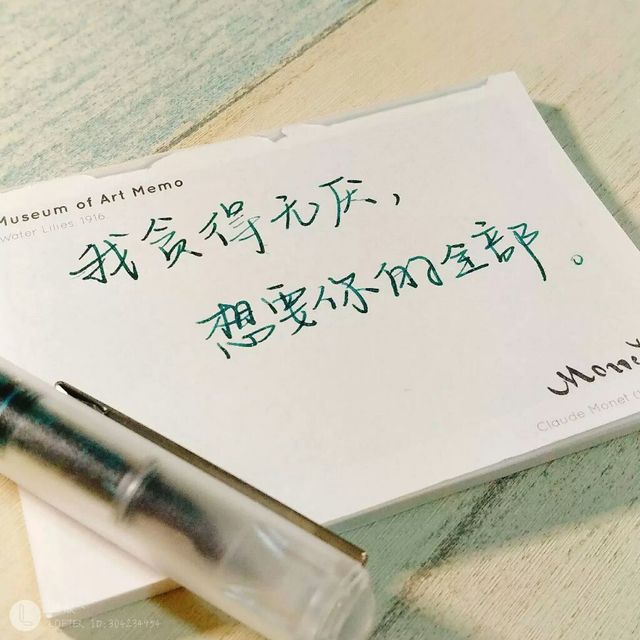 Museum of Art Memo
Water Lilies, 1916
我贪得无厌，
想要你的全部。
Monet
Claude Monet
LOFTER ID:304234954